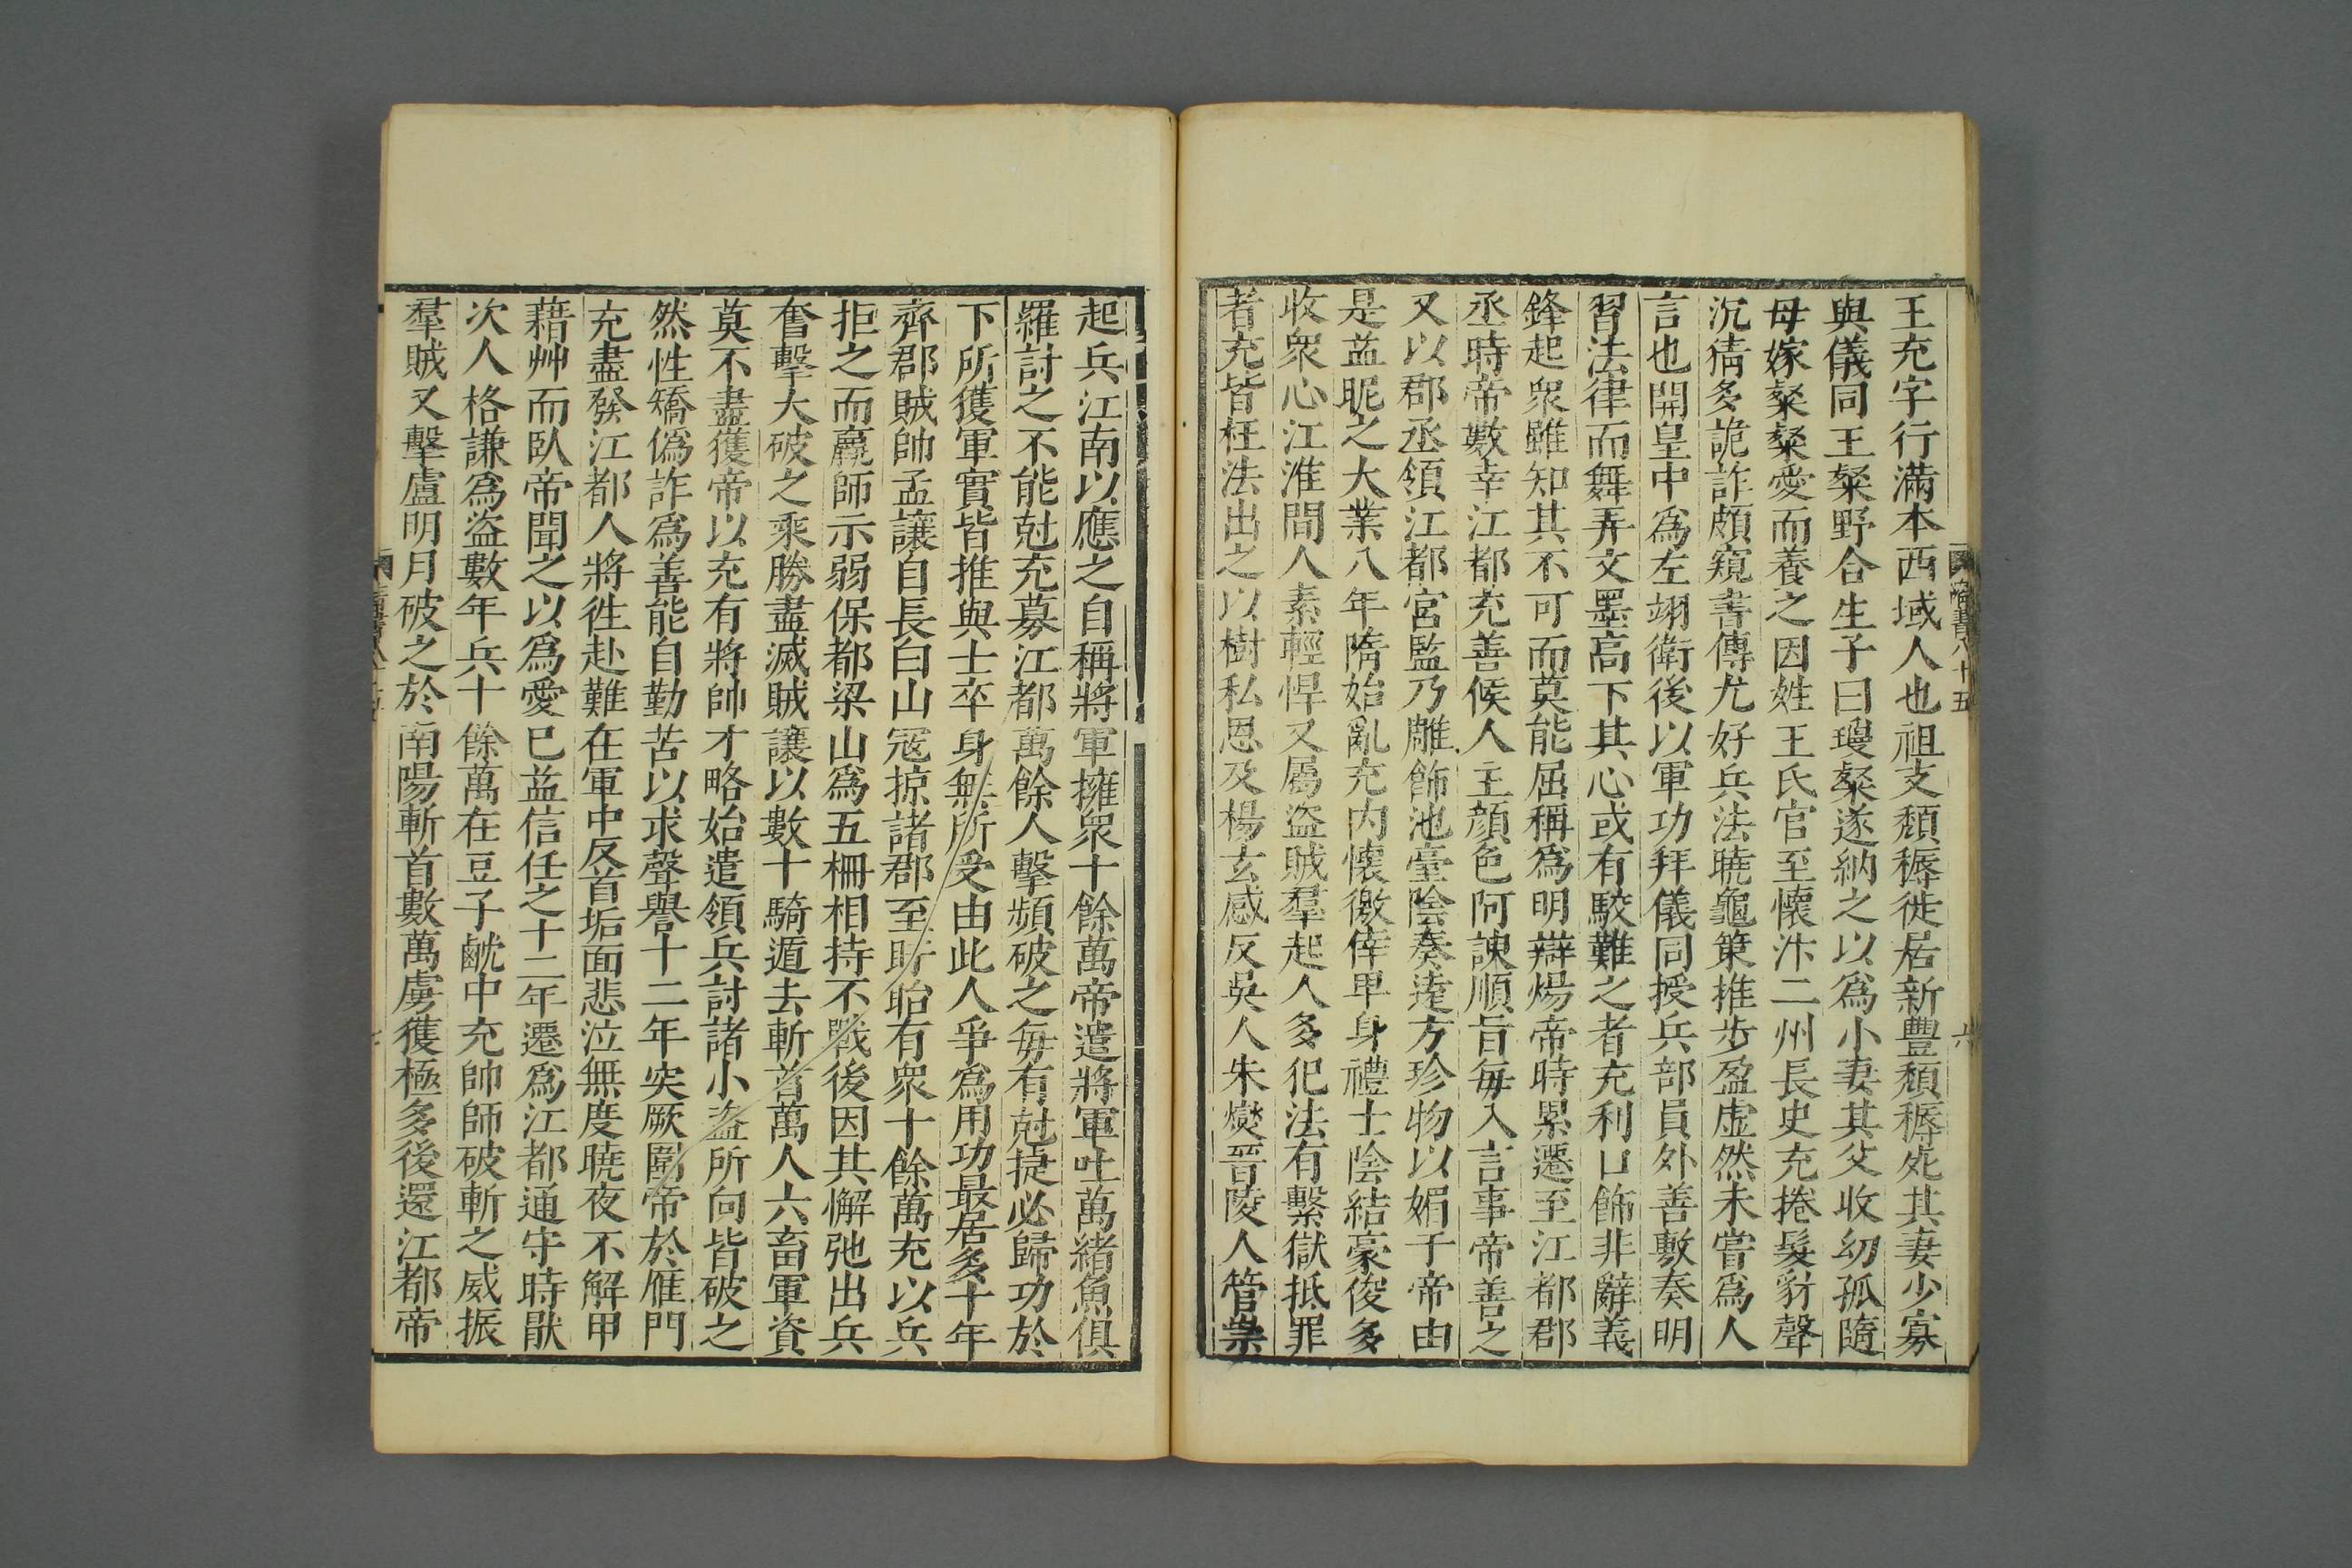 王充字行滿本西域人也祖支頹耨徙居新豐頹耨死其妻少寡
與儀同王粲野合生子曰瓊粲遂納之以爲小妻其父收幼孤隨
母嫁粲粲愛而養之因姓王氏官至懷汴二州長史充捲髮豺聲
沉猜多詭詐頗窺書傳尤好兵法曉龜策推步盈虛然未嘗爲人
言也開皇中爲左翊衛後以軍功拜儀同授兵部員外善敷奏明
習法律而舞弄文墨高下其心或有駮難之者充利口飾非辭義
鋒起衆雖知其不可而莫能屈稱爲明辯煬帝時累遷至江都郡
丞時帝數幸江都充善候人主顏色阿諛順旨每入言事帝善之
又以郡丞領江都宮監乃雕飾池臺陰奏遠方珍物以媚于帝由
是益昵之大業八年隋始亂充内懷徼倖卑身禮士陰結豪俊多
收衆心江淮間人素輕悍又屬盜賊羣起人多犯法有繫獄抵罪
者充皆枉法出之以樹私恩及楊玄感反吳人朱燮晉陵人管崇
隋書八十五
六
起兵江南以應之自稱將軍擁衆十餘萬帝遣將軍吐萬緒魚俱
羅討之不能尅充募江都萬餘人擊頻破之每有尅捷必歸功於
下所獲軍實皆推與士卒身無所受由此人爭爲用功最居多十年
齊郡賊帥孟讓自長白山寇掠諸郡至盱眙有衆十餘萬充以兵
拒之而羸師示弱保都梁山爲五柵相持不戰後因其懈弛出兵
奮擊大破之乘勝盡滅賊讓以數十騎遁去斬首萬人六畜軍資
莫不盡獲帝以充有將帥才略始遣領兵討諸小盜所向皆破之
然性矯僞詐爲善能自勤苦以求聲譽十二年突厥圍帝於雁門
充盡發江都人將徃赴難在軍中反首垢面悲泣無度曉夜不解甲
藉艸而臥帝聞之以爲愛已益信任之十二年遷爲江都通守時厭
次人格謙爲盜數年兵十餘萬在豆子䴚中充帥師破斬之威振
羣賊又擊盧明月破之於南陽斬首數萬虜獲極多後還江都帝